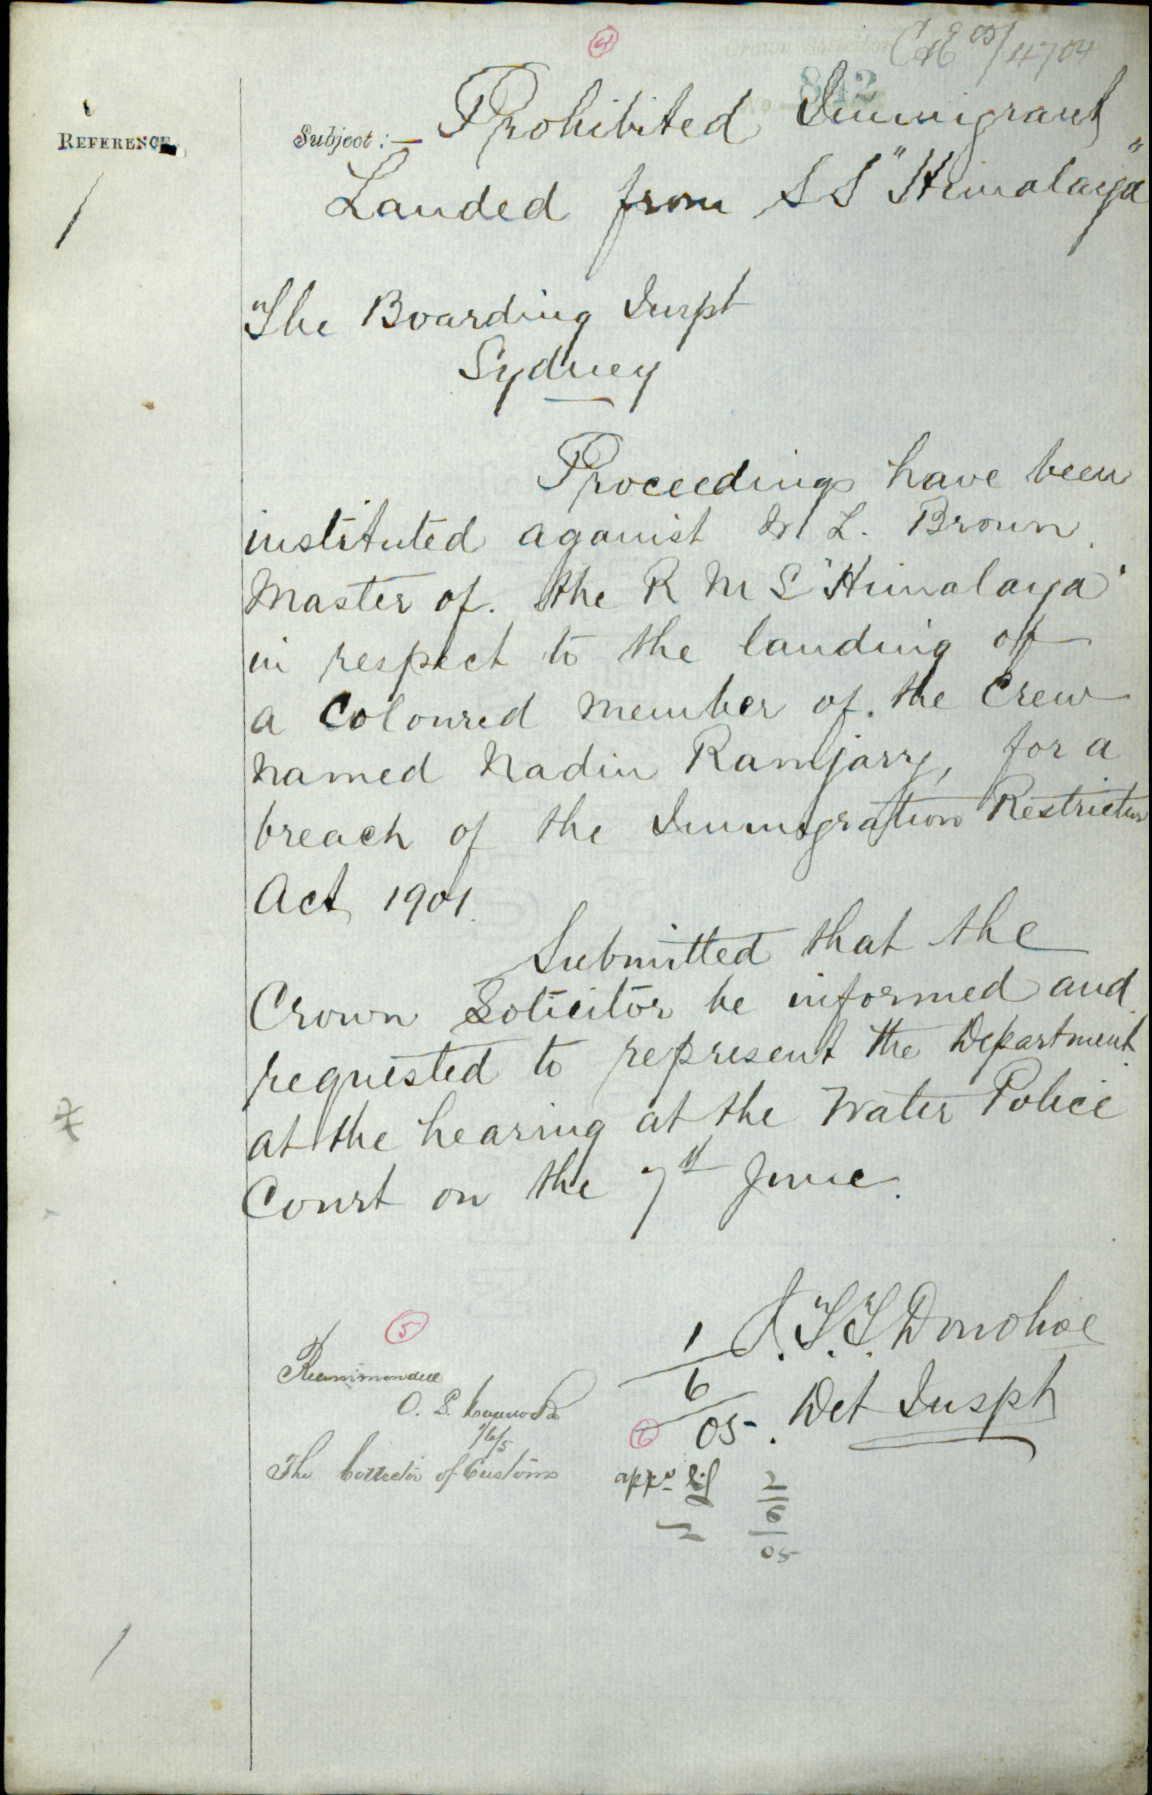 4
C&E 05/4704
842
REFERENCE.
Subject:— Prohibited Immigrant
Landed from SS "Himalaya"
The Boarding Inspt
Sydney
Proceedings have been
instituted against W L. Brown
Master of. the R M S "Himalaya"
in respect to the landing of
a Coloured member of. the Crew
named Nadin Ramjarry, for a
breach of the Immigration Restriction
Act 1901.
Submitted that the
Crown Solicitor be informed and
requested to represent the Department
at the hearing at the Water Police
Court on the 7th June.
J. T. T. Donohoe
1/6/05. Det Inspt
5
Recommended
O. S.
1/6/5
The Collector of Customs
6
appd
2/6/05